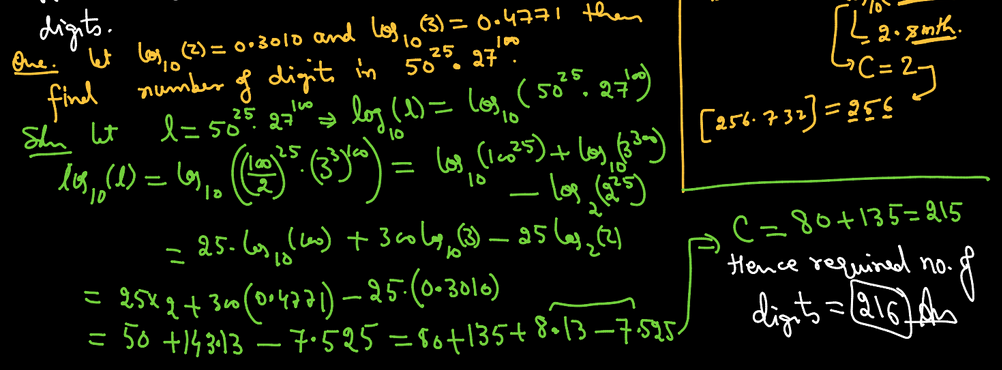 digits.
Que. let log₁₀(2) = 0.3010 and log₁₀(3) = 0.4771 then
find number of digits in 50²⁵ · 27¹⁰⁰.
Soln let l = 50²⁵ · 27¹⁰⁰ ⇒ log₁₀(l) = log₁₀(50²⁵ · 27¹⁰⁰)
log₁₀(l) = log₁₀((100/2)²⁵ · (3³)¹⁰⁰) = log₁₀(100²⁵) + log₁₀(3³⁰⁰)
− log₂(2²⁵)
= 25 · log₁₀(100) + 300 log₁₀(3) − 25 log₂(2)
= 25 × 2 + 300(0.4771) − 25 · (0.3010)
= 50 + 143.13 − 7.525 = 80 + 135 + 8.13 − 7.525
2.8mth.
→ C = 2
[256.732] = 256
⇒ C = 80 + 135 = 215
Hence required no. of
digits = 216 Ans